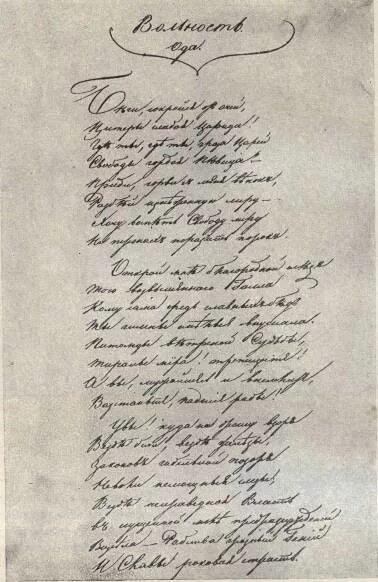 Вольность.
Ода.
Бѣги, сокройся отъ очей,
Цитеры слабая Царица!
Гдѣ ты, гдѣ ты, гроза Царей
Свободы гордая пѣвица? —
Приди, сорви съ меня вѣнокъ,
Разбей изнѣженную лиру —
Хочу воспѣть Свободу міру
На тронахъ поразить порокъ.
Открой мнѣ благородной слѣдъ
Того возвышеннаго Галла
Кому сама средь славныхъ бѣдъ
Ты гимны смѣлые внушала.
Питомцы вѣтреной Судьбы,
Тираны міра! трепещите!
А вы, мужайтесь и внемлите,
Возстаньте, падшіе рабы!
Увы! куда ни брошу взоръ
Вездѣ бичи, вездѣ желѣзы,
Законовъ гибельной позоръ
Неволи немощныя слезы;
Вездѣ неправедная Власть
Въ сгущенной мглѣ предразсужденій
Возсѣла — Рабства грозный Геній
И Славы роковая страсть.